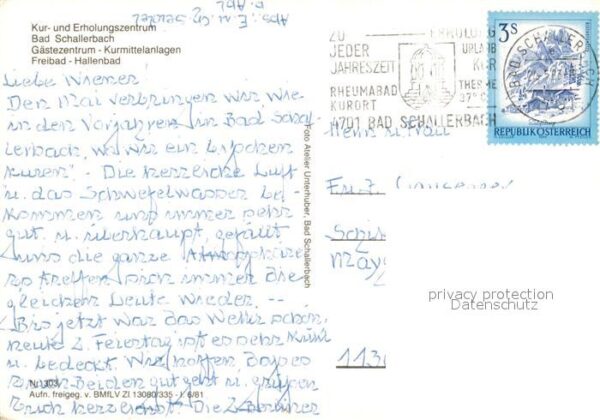 Abs. E. u. G.
Kur- und Erholungszentrum
Bad Schallerbach
Gästezentrum - Kurmittelanlagen
Freibad - Hallenbad
Liebe Wiener
Den Mai verbringen wir, wie
in den Vorjahren in Bad Schal-
lerbach, wo wir ein bisschen
kuren". - Die herrliche Luft
u. das Schwefelwasser be-
kommen uns immer sehr
gut. u. überhaupt, gefällt
uns die ganze Atmosphäre
so treffen sich immer die
gleichen Leute wieder. --
Bis jetzt war das Wetter schön,
heute 2. Feiertag ist es sehr kühl
u. bedeckt. Wir hoffen, daß es
Euch Beiden gut geht u. grüßen
Euch herzlichst Die 2 Berliner
Nr. 303
Aufn. freigeg. v. BMfLV ZI 13080/335 - I. 6/81
Foto Atelier Unterhuber, Bad Schallerbach
ZU JEDER JAHRESZEIT
RHEUMABAD
KURORT
ERHOLUNG
URLAUB
KUR
THERME
37°
4701 BAD SCHALLERBACH
BAD SCHALLERBACH
3 S
REPUBLIK ÖSTERREICH
Herrn u. Frau
113
privacy protection
Datenschutz